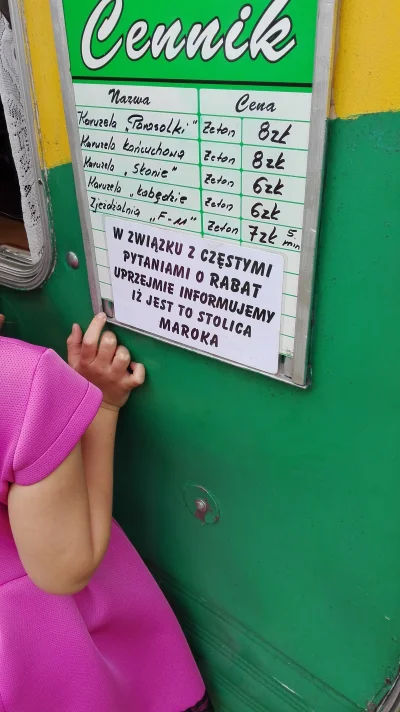 Cennik
Nazwa Cena
Karuzela "Parasolki" Żeton 8zł
Karuzela łańcuchowa Żeton 8zł
Karuzela "Słonie" Żeton 6zł
Karuzela "Łabędzie Żeton 6zł
Zjeżdżalnia "F-M" Żeton 7zł 5 min
W ZWIĄZKU Z CZĘSTYMI
PYTANIAMI O RABAT
UPRZEJMIE INFORMUJEMY
IŻ JEST TO STOLICA
MAROKA